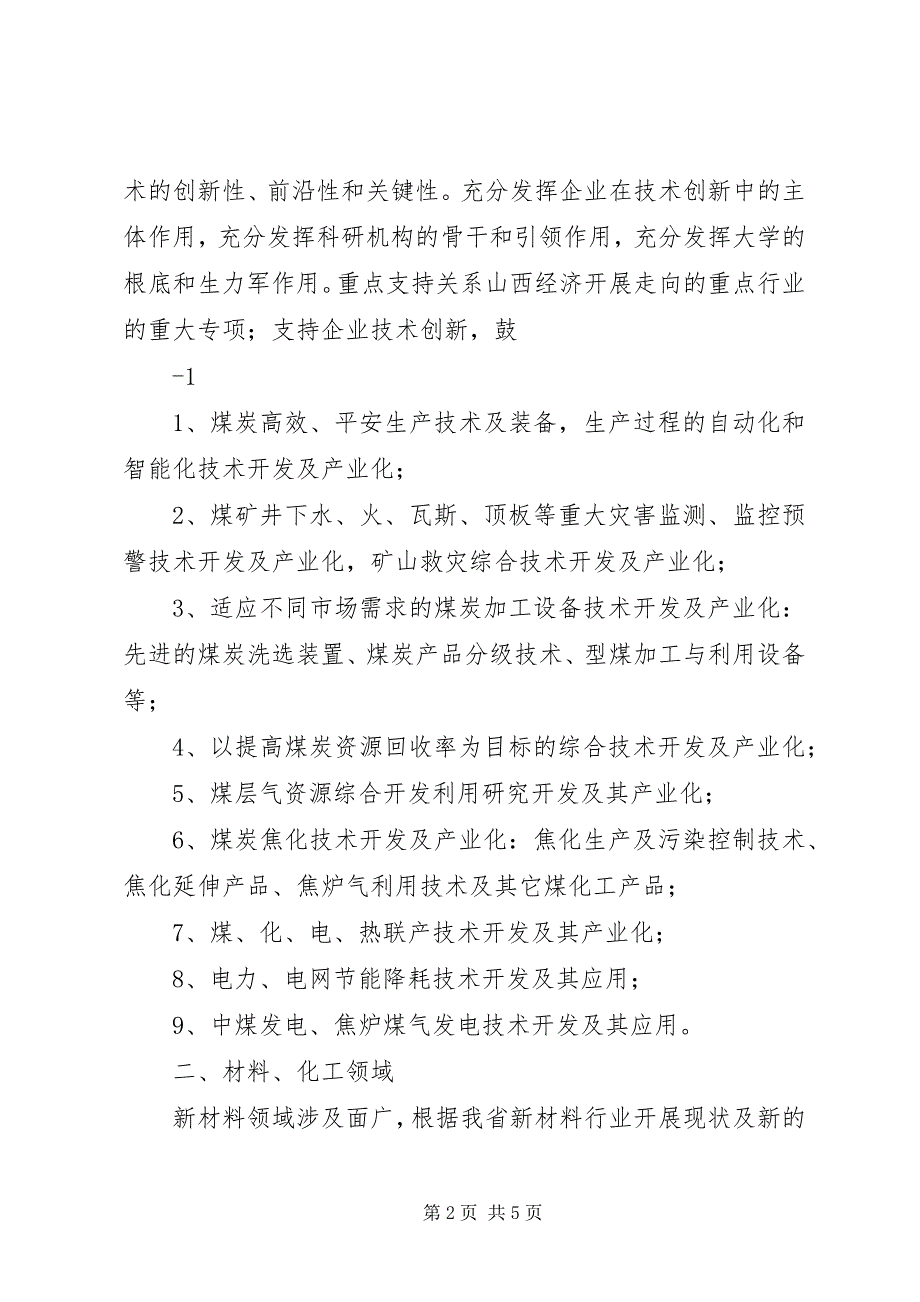 术的创新性、前沿性和关键性。充分发挥企业在技术创新中的主
体作用，充分发挥科研机构的骨干和引领作用，充分发挥大学的
根底和生力军作用。重点支持关系山西经济开展走向的重点行业
的重大专项；支持企业技术创新，鼓
-1
1、煤炭高效、平安生产技术及装备，生产过程的自动化和
智能化技术开发及产业化；
2、煤矿井下水、火、瓦斯、顶板等重大灾害监测、监控预
警技术开发及产业化，矿山救灾综合技术开发及产业化；
3、适应不同市场需求的煤炭加工设备技术开发及产业化：
先进的煤炭洗选装置、煤炭产品分级技术、型煤加工与利用设备
等；
4、以提高煤炭资源回收率为目标的综合技术开发及产业化；
5、煤层气资源综合开发利用研究开发及其产业化；
6、煤炭焦化技术开发及产业化：焦化生产及污染控制技术、
焦化延伸产品、焦炉气利用技术及其它煤化工产品；
7、煤、化、电、热联产技术开发及其产业化；
8、电力、电网节能降耗技术开发及其应用；
9、中煤发电、焦炉煤气发电技术开发及其应用。
二、材料、化工领域
新材料领域涉及面广，根据我省新材料行业开展现状及新的
第 2 页 共 5 页